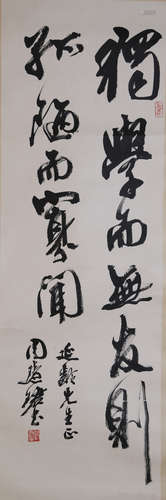 獨學而無友則
孤陋而寡聞
延齡先生正
周慧珺